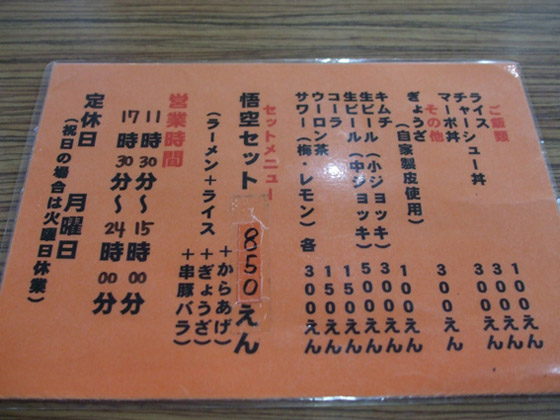 ご飯類
ライス 100えん
チャーシュー丼 300えん
マーボ丼 300えん
その他
ぎょうざ(自家製皮使用) 300えん
キムチ 100えん
生ビール(小ジョッキ) 300えん
生ビール(中ジョッキ) 500えん
コーラ 150えん
ウーロン茶 150えん
サワー(梅・レモン)各 300えん
セットメニュー
悟空セット 850えん
(ラーメン+ライス +からあげ)
+ぎょうざ)
+串豚バラ)
営業時間
11時30分〜15時00分
17時30分〜24時00分
定休日 月曜日
(祝日の場合は火曜日休業)